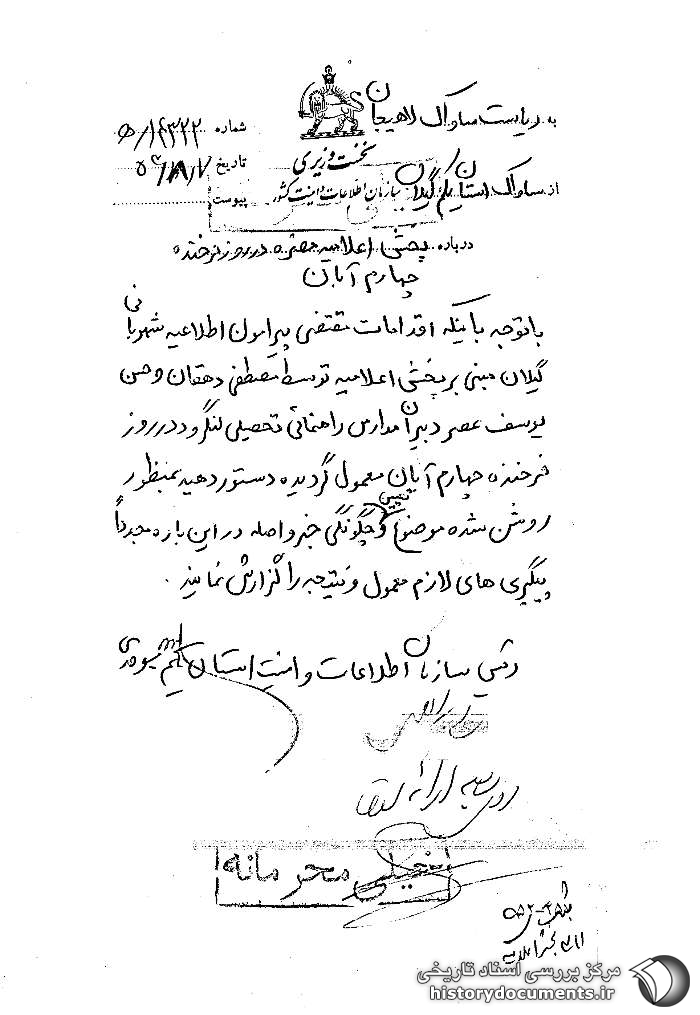 به ریاست ساواک لاهیجان
شماره ۱۴۳۲۲/ه
نخست وزیری
تاریخ ۵۴/۸/۷
از ساواک استان یکم گیلان
سازمان اطلاعات و امنیت کشور
پیوست
درباره پخش اعلامیه مضره در روز فرخنده
چهارم آبان
باتوجه باینکه اقدامات مقتضی پیرامون اطلاعیه شهربانی
گیلان مبنی بر پخش اعلامیه توسط مصطفی دهقان و حسن
یوسف عصر دبیران مدارس راهنمائی تحصیلی لنگرود در روز
فرخنده چهارم آبان معمول گردیده دستور دهید بمنظور
روشن شدن موضوع و تعیین چگونگی خبر واصله در این باره مجدداً
پیگیری های لازم معمول و نتیجه را گزارش نمایند.
رئیس سازمان اطلاعات و امنیت استان یکم
ارائه
خیلی محرمانه
مرکز بررسی اسناد تاریخی
historydocuments.ir